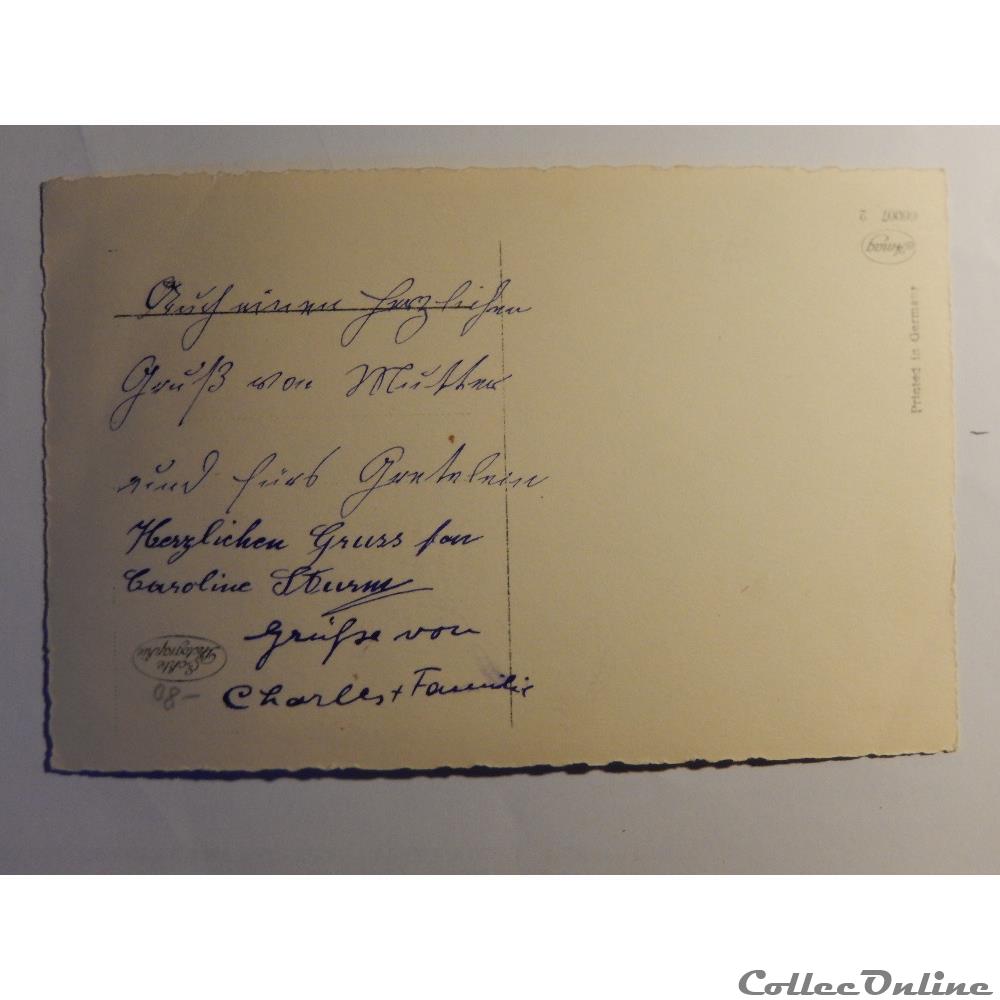 Auch einen herzlichen
Gruß von Mutter
und fürs Gretelein
Herzlichen Gruss fon
Caroline Sturm
Grüße von
Charles + Familie
Echte
Photographie
-80
66007 2
Amag
Printed in Germany
CollecOnline